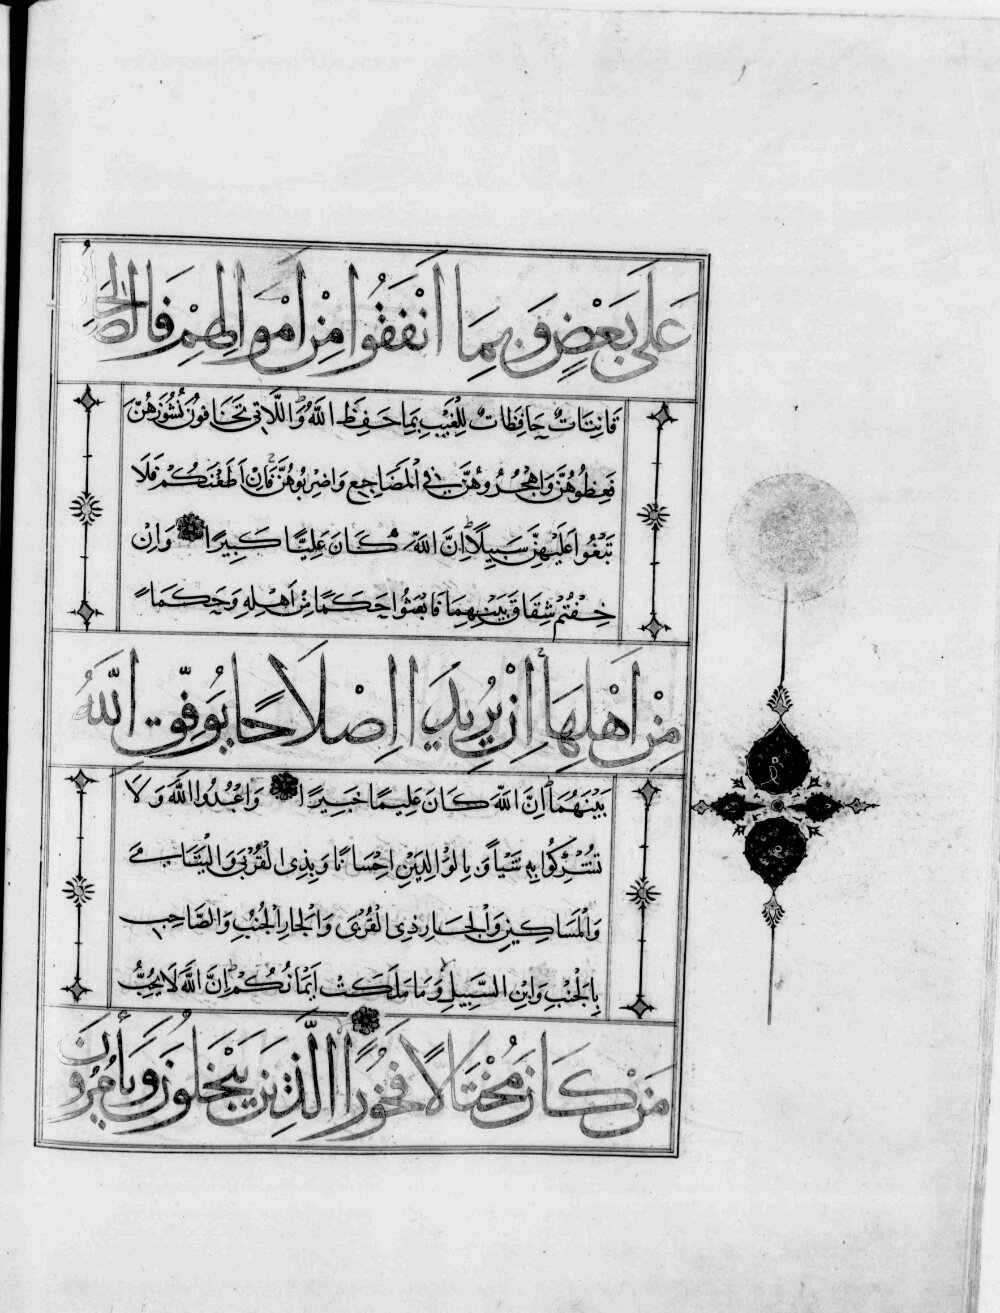 عَلَى بَعْضٍ وَبِمَا أَنْفَقُوا مِنْ أَمْوَالِهِمْ فَالصَّالِحَ
قَانِتَاتٌ حَافِظَاتٌ لِلْغَيْبِ بِمَا حَفِظَ اللَّهُ وَاللَّاتِي تَخَافُونَ نُشُوزَهُنَّ
فَعِظُوهُنَّ وَاهْجُرُوهُنَّ فِي الْمَضَاجِعِ وَاضْرِبُوهُنَّ فَإِنْ أَطَعْنَكُمْ فَلَا
تَبْغُوا عَلَيْهِنَّ سَبِيلًا إِنَّ اللَّهَ كَانَ عَلِيًّا كَبِيرًا وَإِنْ
خِفْتُمْ شِقَاقَ بَيْنِهِمَا فَابْعَثُوا حَكَمًا مِنْ أَهْلِهِ وَحَكَمًا
مِنْ أَهْلِهَا إِنْ يُرِيدَا إِصْلَاحًا يُوَفِّقِ اللَّهُ
بَيْنَهُمَا إِنَّ اللَّهَ كَانَ عَلِيمًا خَبِيرًا وَاعْبُدُوا اللَّهَ وَلَا
تُشْرِكُوا بِهِ شَيْئًا وَبِالْوَالِدَيْنِ إِحْسَانًا وَبِذِي الْقُرْبَى وَالْيَتَامَى
وَالْمَسَاكِينِ وَالْجَارِ ذِي الْقُرْبَى وَالْجَارِ الْجُنُبِ وَالصَّاحِبِ
بِالْجَنْبِ وَابْنِ السَّبِيلِ وَمَا مَلَكَتْ أَيْمَانُكُمْ إِنَّ اللَّهَ لَا يُحِبُّ
مَنْ كَانَ مُخْتَالًا فَخُورًا الَّذِينَ يَبْخَلُونَ وَيَأْمُرُونَ